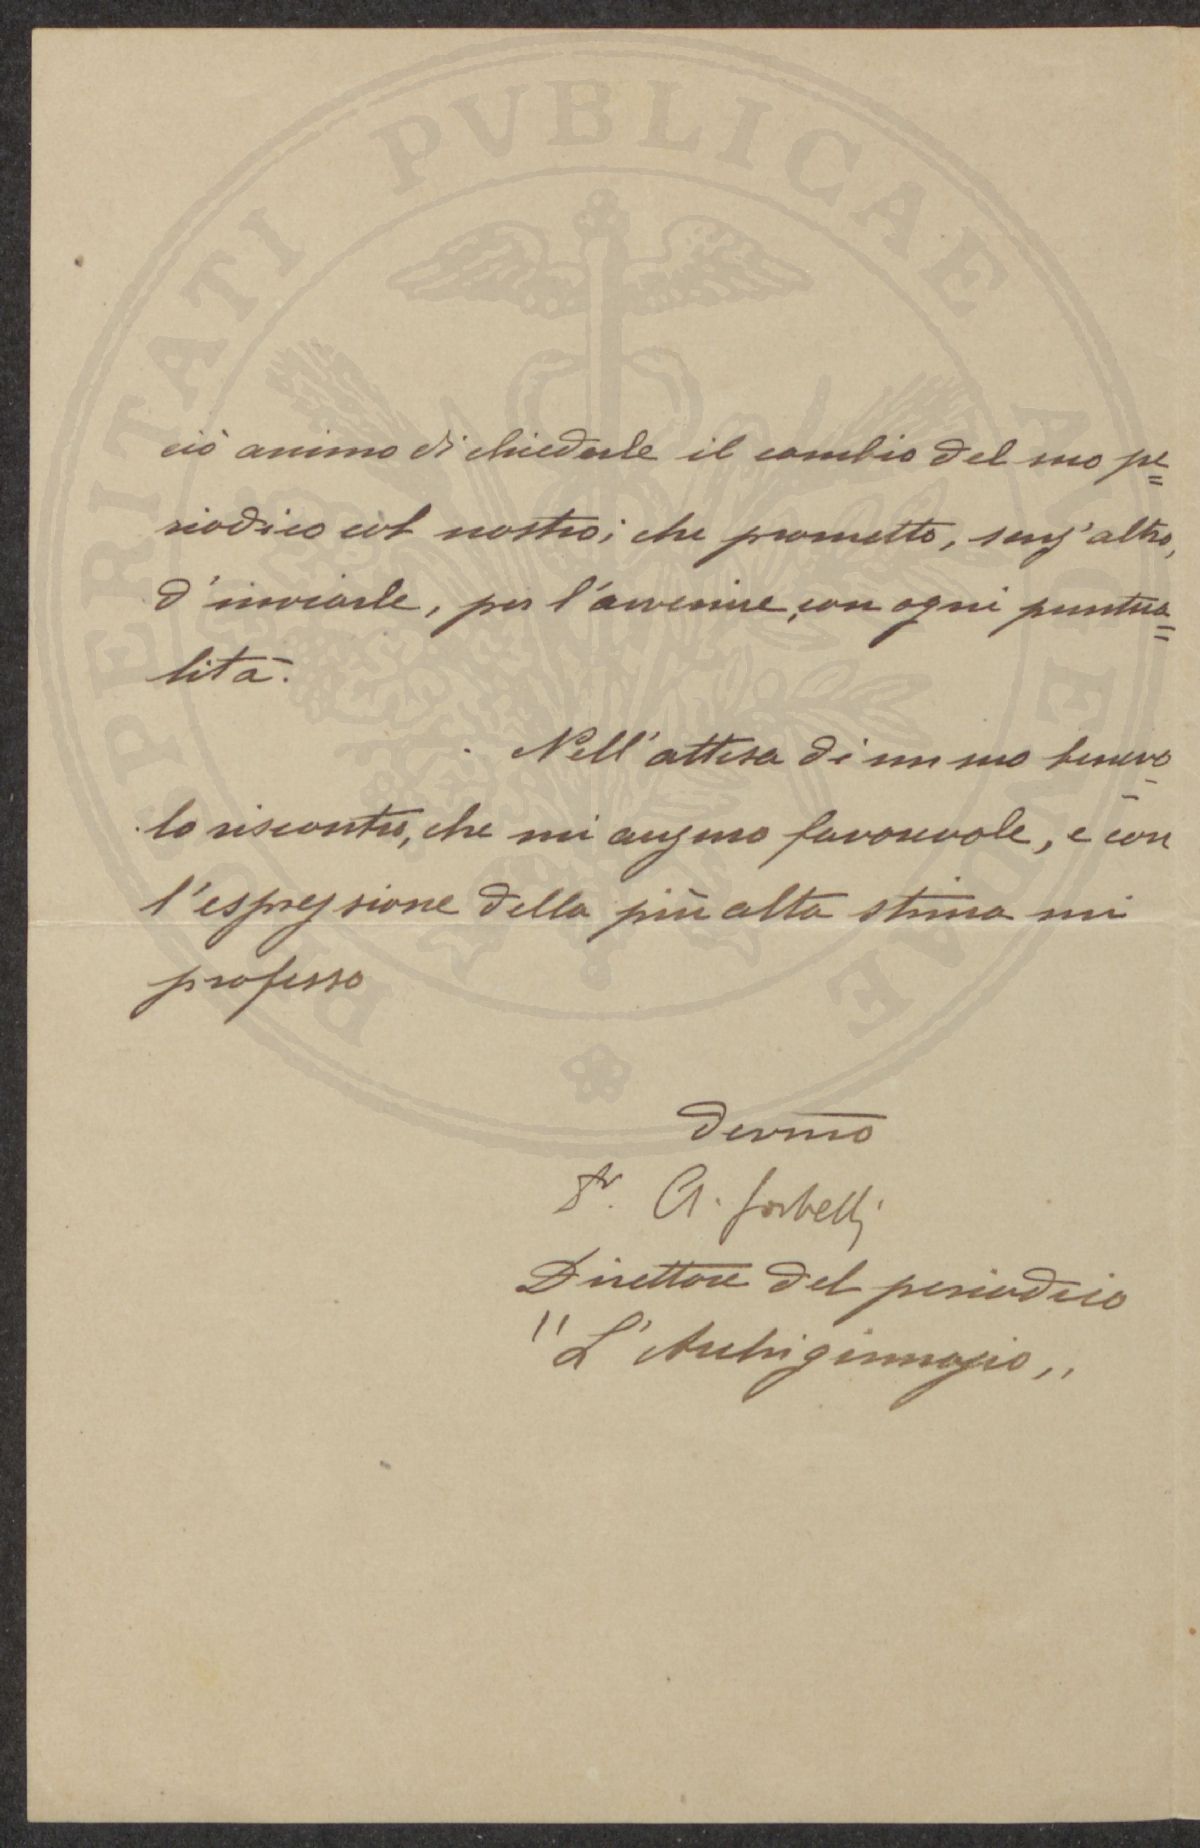 PROSPERITATI PVBLICAE AVGENDAE
ciò animo di chiederle il cambio del suo pe=
riodico col nostro; che prometto, senz'altro,
d'inviarle, per l'avvenire, con ogni puntua=
lità.
Nell'attesa di un suo benevo-
lo riscontro, che mi auguro favorevole, e con
l'espressione della più alta stima mi
professo
devmo
Dr. A. Sorbelli
Direttore del periodico
"L'Archiginnasio,,